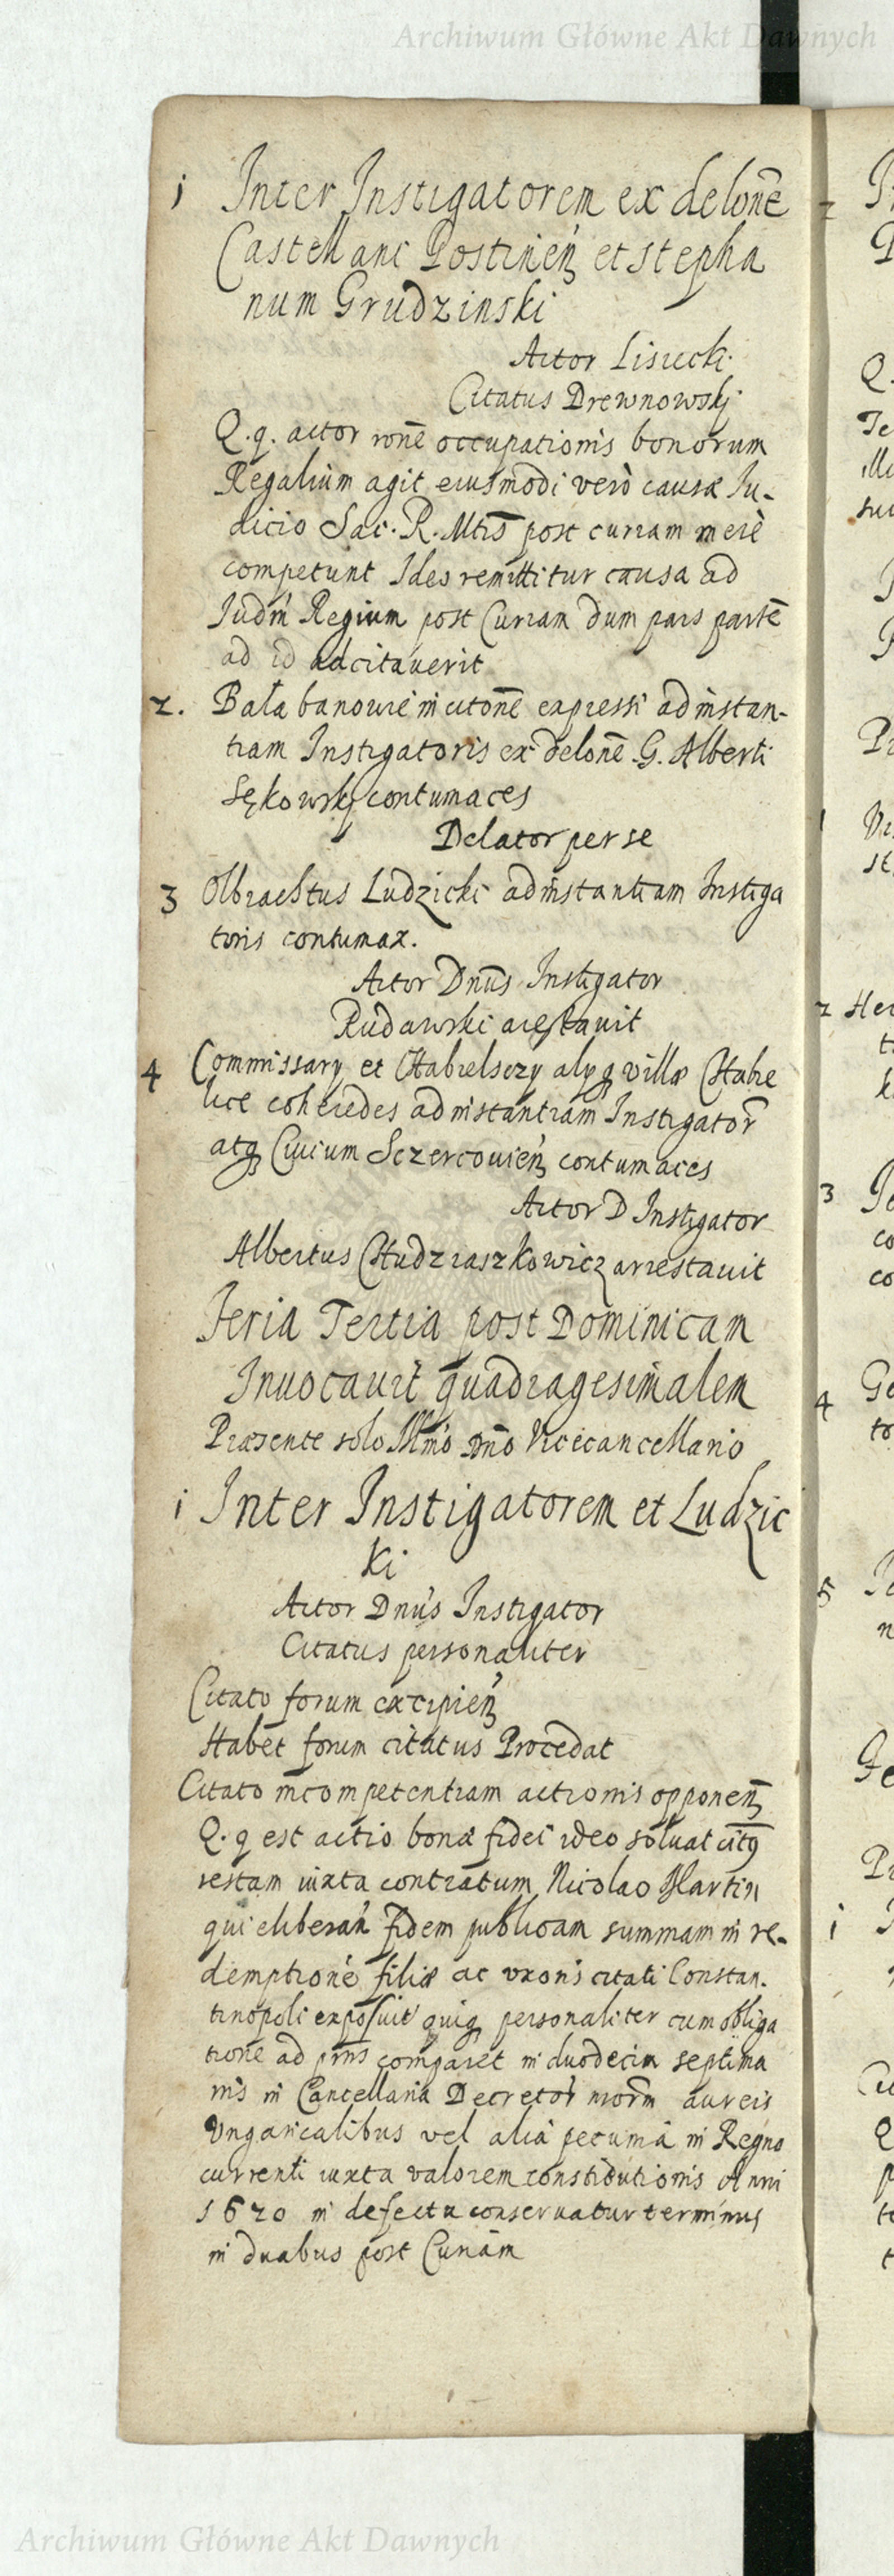 Archiwum Główne Akt Dawnych
1 Inter Instigatorem ex delone
Castellani et Stepha
num Grudzinski
Actor Lisiecki
Citatus Drewnowskj
Q. q. actor rone occupationis bonorum
Regalium agit eiusmodi verò causæ Iu-
dicio Sac. R. Mtis post curiam merè
competunt Ideo remittitur causa ad
Iudm Regium post Curiam dum pars parte
ad id adcitauerit
2. in citone expressi ad instan-
tiam Instigatoris ex delone G. Alberti
Sękowskj contumaces
Delator per se
3 Olbrachtus Ludzicki ad instantiam Instiga
toris contumax.
Actor Dnus Instigator
Rudawski arestauit
4 Commissary et villæ
coheredes ad instantiam Instigator
atq contumaces
Actor D Instigator
Albertus Chudziaszkowicz arrestauit
Feria Tertia post Dominicam
Inuocauit quadragesimalem
Præsente solo Illmo Dno Vicecancellario
1 Inter Instigatorem et Ludzic
ki
Actor Dnus Instigator
Citatus personaliter
Citato forum excipien
Habet forum citatus Procedat
Citato incompetentiam actionis opponen
Q. q est actio bonæ fidei ideo soluat
restam iuxta contractum Nicolao Martin
qui fidem publicam summam in re-
demptione filiæ ac vxoris citati Constan.
tinopoli exposuit quiq personaliter cum obliga
tione ad compäret in duodecim septima
nis in Cancellaria Decretor aureis
Vngaricalibus vel alia pecunia in Regno
currenti iuxta valorem constitutionis Anni
1620 in defectu conseruatur terminus
in duabus post Curiam
Archiwum Główne Akt Dawnych